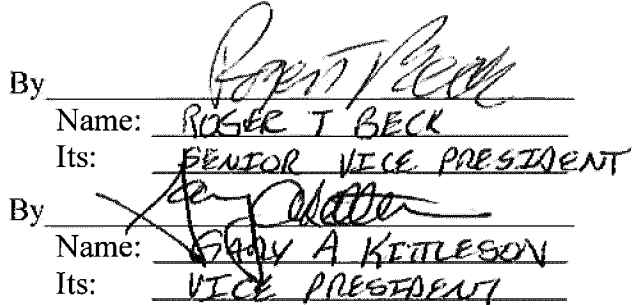 By Roger T Beck
Name: ROGER T BECK
Its: SENIOR VICE PRESIDENT
By
Name: GARY A KITTLESON
Its: VICE PRESIDENT